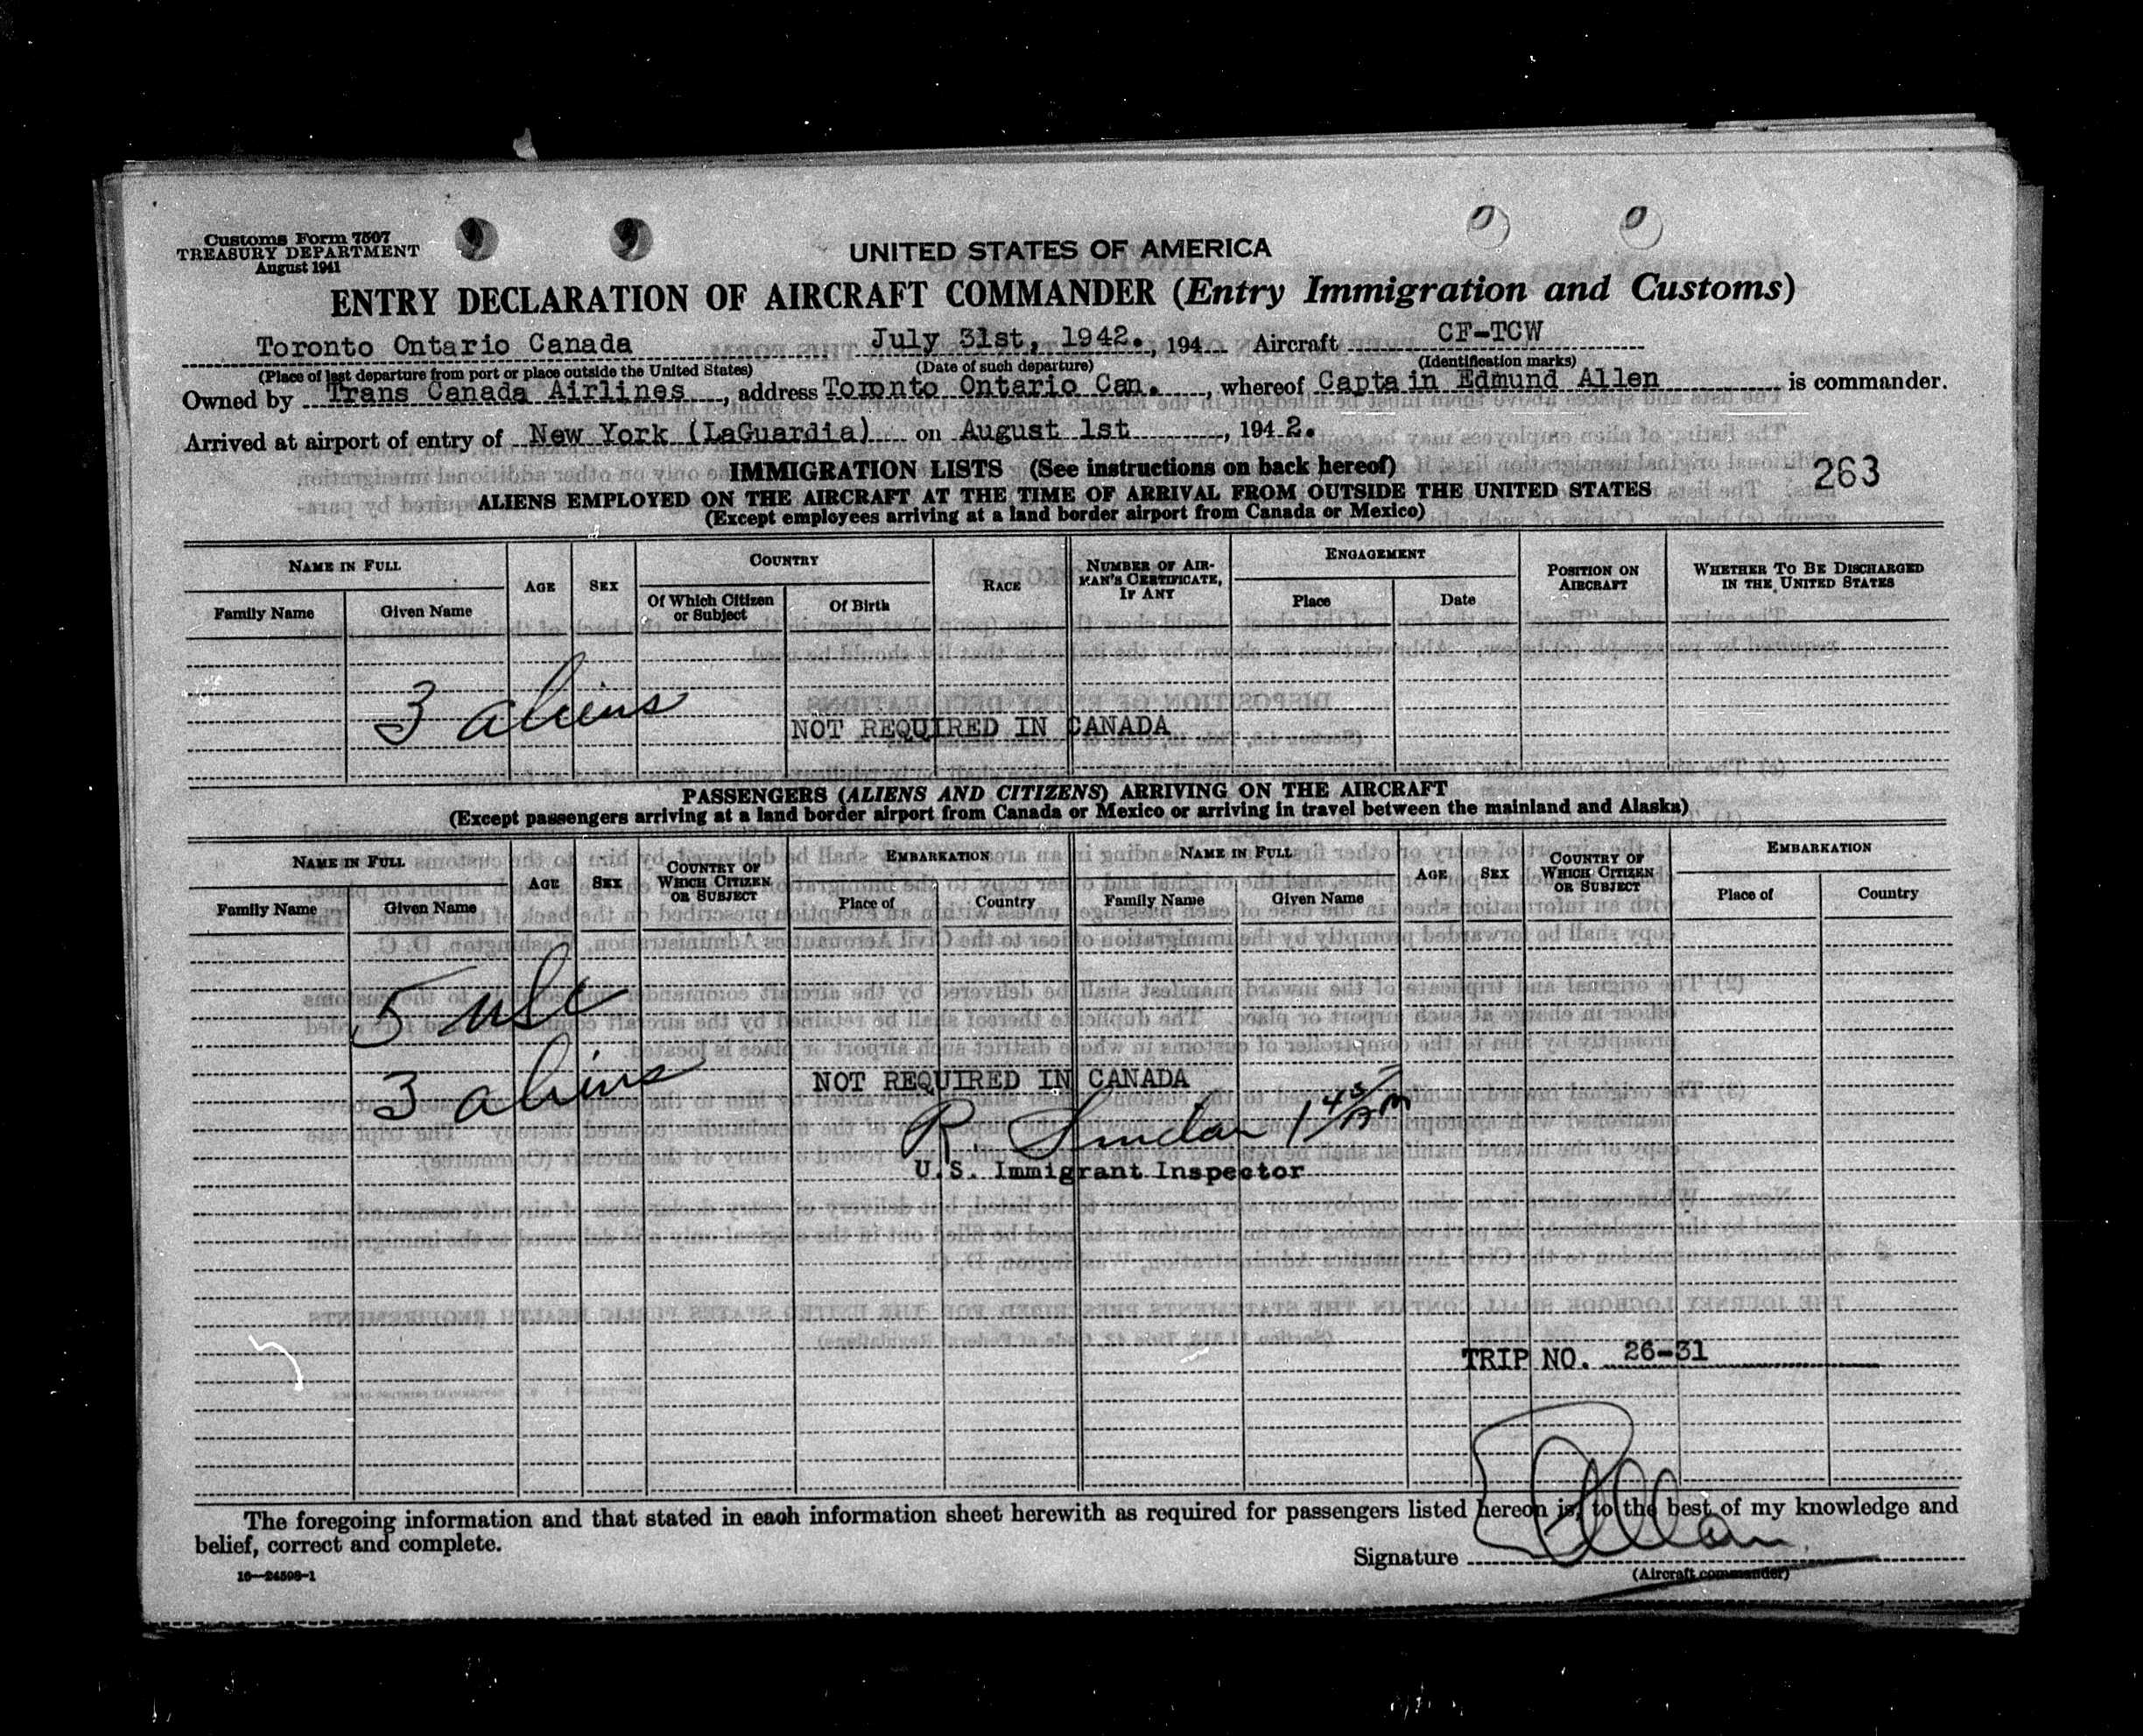 Customs Form 7507
TREASURY DEPARTMENT
August 1941
UNITED STATES OF AMERICA
ENTRY DECLARATION OF AIRCRAFT COMMANDER (Entry Immigration and Customs)
Toronto Ontario Canada July 31st, 1942. , 194 Aircraft CF-TCW
(Place of last departure from port or place outside the United States) (Date of such departure) (Identification marks)
Owned by Trans Canada Airlines , address Toronto Ontario Can. , whereof Captain Edmund Allen is commander.
Arrived at airport of entry of New York (LaGuardia) on August 1st , 194 2.
IMMIGRATION LISTS (See instructions on back hereof)
263
ALIENS EMPLOYED ON THE AIRCRAFT AT THE TIME OF ARRIVAL FROM OUTSIDE THE UNITED STATES
(Except employees arriving at a land border airport from Canada or Mexico)
NAME IN FULL AGE SEX COUNTRY RACE NUMBER OF AIRMAN'S CERTIFICATE, IF ANY ENGAGEMENT POSITION ON AIRCRAFT WHETHER TO BE DISCHARGED IN THE UNITED STATES
Family Name Given Name Of Which Citizen or Subject Of Birth Place Date
3 aliens
NOT REQUIRED IN CANADA
PASSENGERS (ALIENS AND CITIZENS) ARRIVING ON THE AIRCRAFT
(Except passengers arriving at a land border airport from Canada or Mexico or arriving in travel between the mainland and Alaska)
NAME IN FULL AGE SEX COUNTRY OF WHICH CITIZEN OR SUBJECT EMBARKATION NAME IN FULL AGE SEX COUNTRY OF WHICH CITIZEN OR SUBJECT EMBARKATION
Family Name Given Name Place of Country Family Name Given Name Place of Country
5 USC
3 aliens
NOT REQUIRED IN CANADA
R. 1 45 AM
U.S. Immigrant Inspector
TRIP NO. 26-31
The foregoing information and that stated in each information sheet herewith as required for passengers listed hereon is, to the best of my knowledge and
belief, correct and complete.
Signature E Allen
(Aircraft commander)
16—24598-1